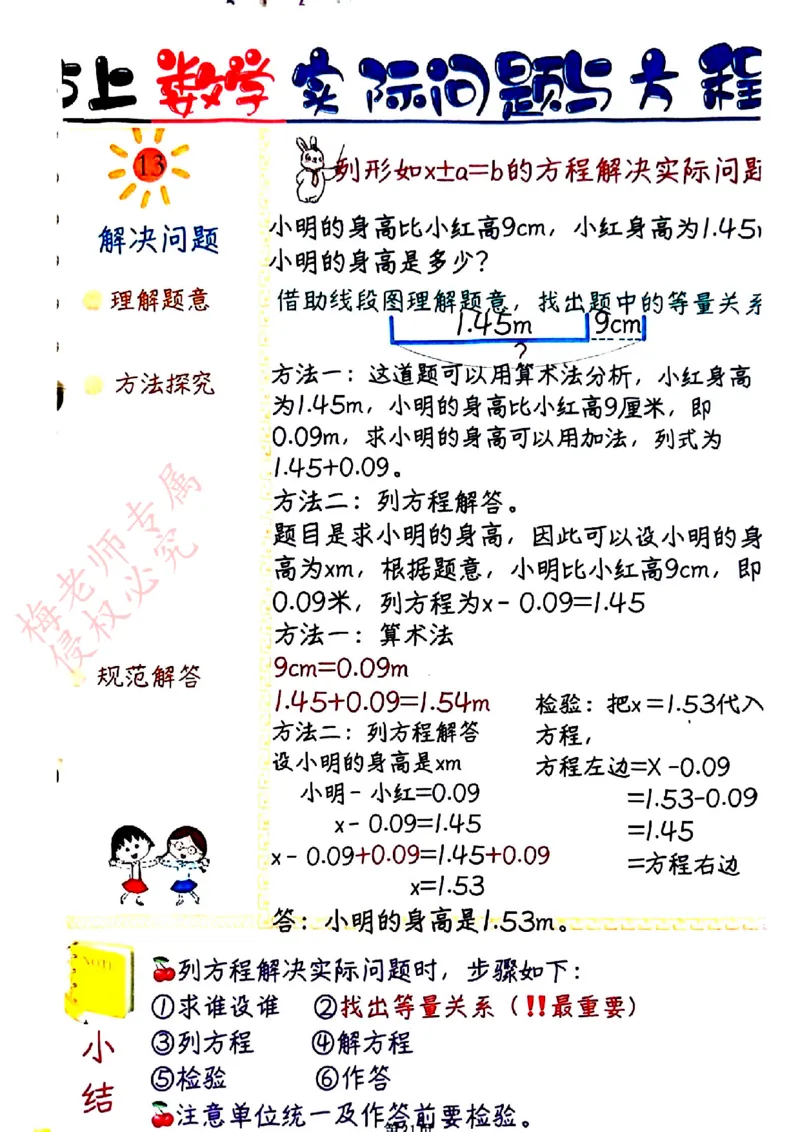 5上 数学 实际问题与方程
13
列形如x±a=b的方程解决实际问题
解决问题
小明的身高比小红高9cm，小红身高为1.45m
小明的身高是多少？
理解题意
借助线段图理解题意，找出题中的等量关系
1.45m 9cm
?
方法探究
方法一：这道题可以用算术法分析，小红身高
为1.45m，小明的身高比小红高9厘米，即
0.09m，求小明的身高可以用加法，列式为
1.45+0.09。
方法二：列方程解答。
题目是求小明的身高，因此可以设小明的身
高为xm，根据题意，小明比小红高9cm，即
0.09米，列方程为x-0.09=1.45
梅老师专属
侵权必究
规范解答
方法一：算术法
9cm=0.09m
1.45+0.09=1.54m
方法二：列方程解答
设小明的身高是xm
小明-小红=0.09
x-0.09=1.45
x-0.09+0.09=1.45+0.09
x=1.53
答：小明的身高是1.53m。
检验：把x=1.53代入
方程，
方程左边=X-0.09
=1.53-0.09
=1.45
=方程右边
NOTE
小结
列方程解决实际问题时，步骤如下：
①求谁设谁 ②找出等量关系（!!最重要）
③列方程 ④解方程
⑤检验 ⑥作答
注意单位统一及作答前要检验。